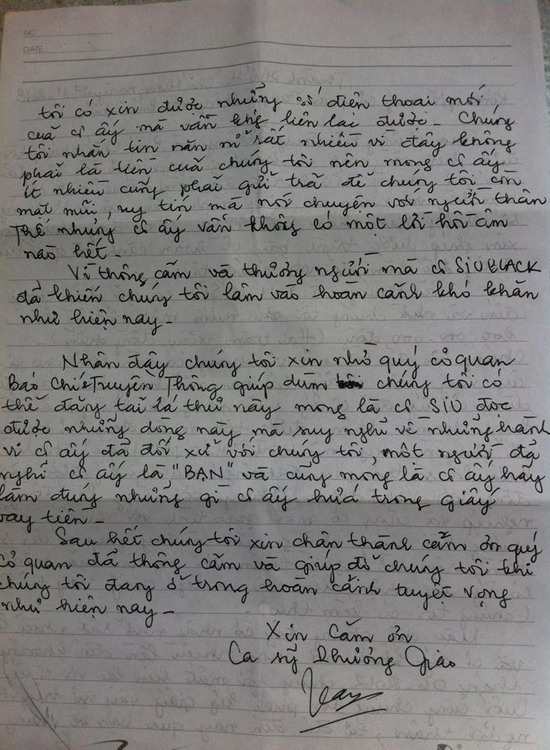 NO
DATE
tôi có xin được những số điện thoại mới
của cị ấy mà vẫn khg liên lạc được. Chúng
tôi nhắn tin năn nỉ rất nhiều vì đây không
phải là tiền của chúng tôi nên mong cị ấy
ít nhiều cũng phải gửi trả để chúng tôi còn
mặt mũi, uy tín mà nói chuyện với người thân
Thế nhưng cị ấy vẫn không có một lời hồi âm
nào hết.
Vì thông cảm và thương người mà cị SIU BLACK
đã khiến chúng tôi lâm vào hoàn cảnh khó khăn
như hiện nay.
Nhân đây chúng tôi xin nhờ quý cơ quan
Báo Chí Truyền Thông giúp dùm chúng tôi có
thể đăng tải lá thư này mong là cị SIU đọc
được những dòng này mà suy nghĩ về những hành
vi cị ấy đã đối xử với chúng tôi, một người đã
nghĩ cị ấy là "BẠN" và cũng mong là cị ấy hãy
làm đúng những gì cị ấy hứa trong giấy
vay tiền.
Sau hết chúng tôi xin chân thành cảm ơn quý
cơ quan đã thông cảm và giúp đỡ chúng tôi khi
chúng tôi đang ở trong hoàn cảnh tuyệt vọng
như hiện nay.
Xin Cảm ơn
Ca sỹ Phương Giao